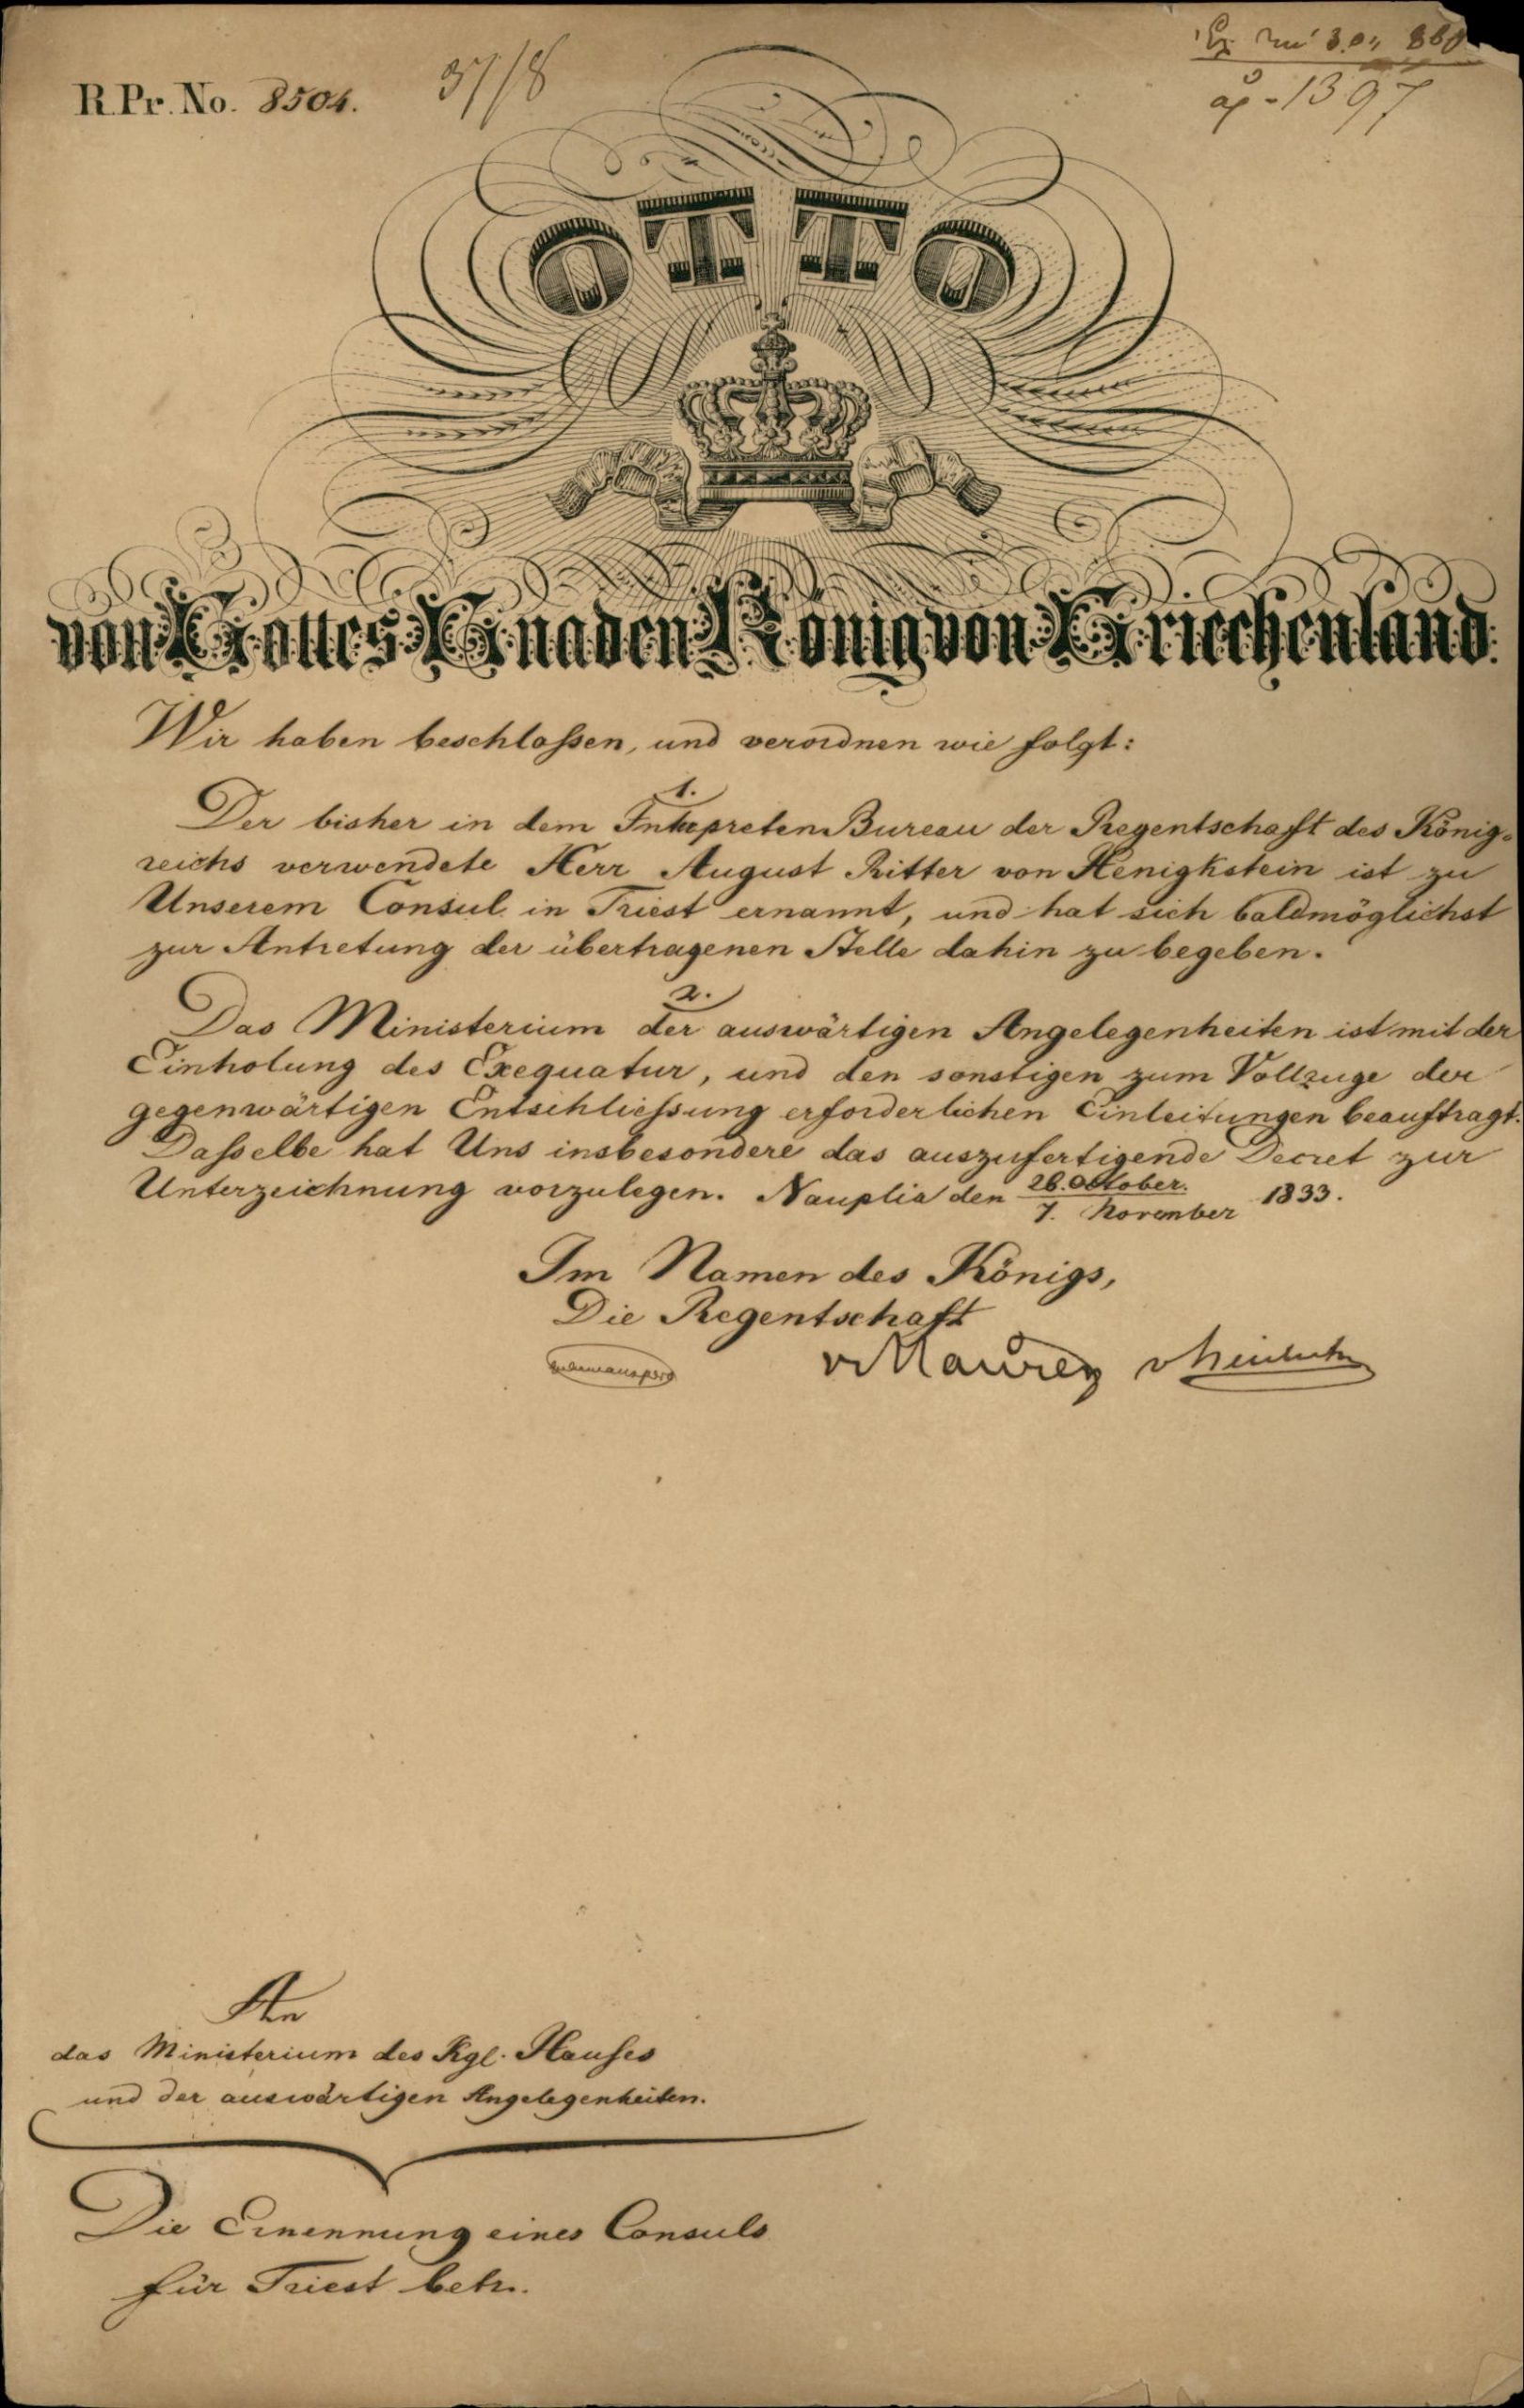 R. Pr. No. 8504.
37/8
1397
OTTO
von Gottes Gnaden König von Griechenland.
Wir haben beschloßen, und verordnen wie folgt:
1.
Der bisher in dem Interpreten Bureau der Regentschaft des König-
reichs verwendete Herr August Ritter von Henigkstein ist zu
Unserem Consul in Triest ernannt, und hat sich baldmöglichst
zur Antretung der übertragenen Stelle dahin zu begeben.
2.
Das Ministerium der auswärtigen Angelegenheiten ist mit der
Einholung des Exequatur, und den sonstigen zum Vollzuge der
gegenwärtigen Entschließung erforderlichen Einleitungen beauftragt.
Daßelbe hat Uns insbesondere das auszufertigende Decret zur
Unterzeichnung vorzulegen. Nauplia den 26. October. / 7. November 1833.
Im Namen des Königs,
Die Regentschaft
v Maurer
An
das Ministerium des Kgl. Hauses
und der auswärtigen Angelegenheiten.
Die Ernennung eines Consuls
für Triest betr.